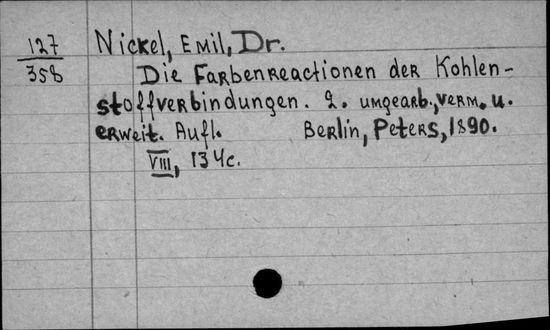 127
358
Nickel, Emil, Dr.
Die Farbenreactionen der Kohlen-
stoffverbindungen. 2. umgearb., verm. u.
erweit. Aufl. Berlin, Peters, 1890.
VIII, 134c.